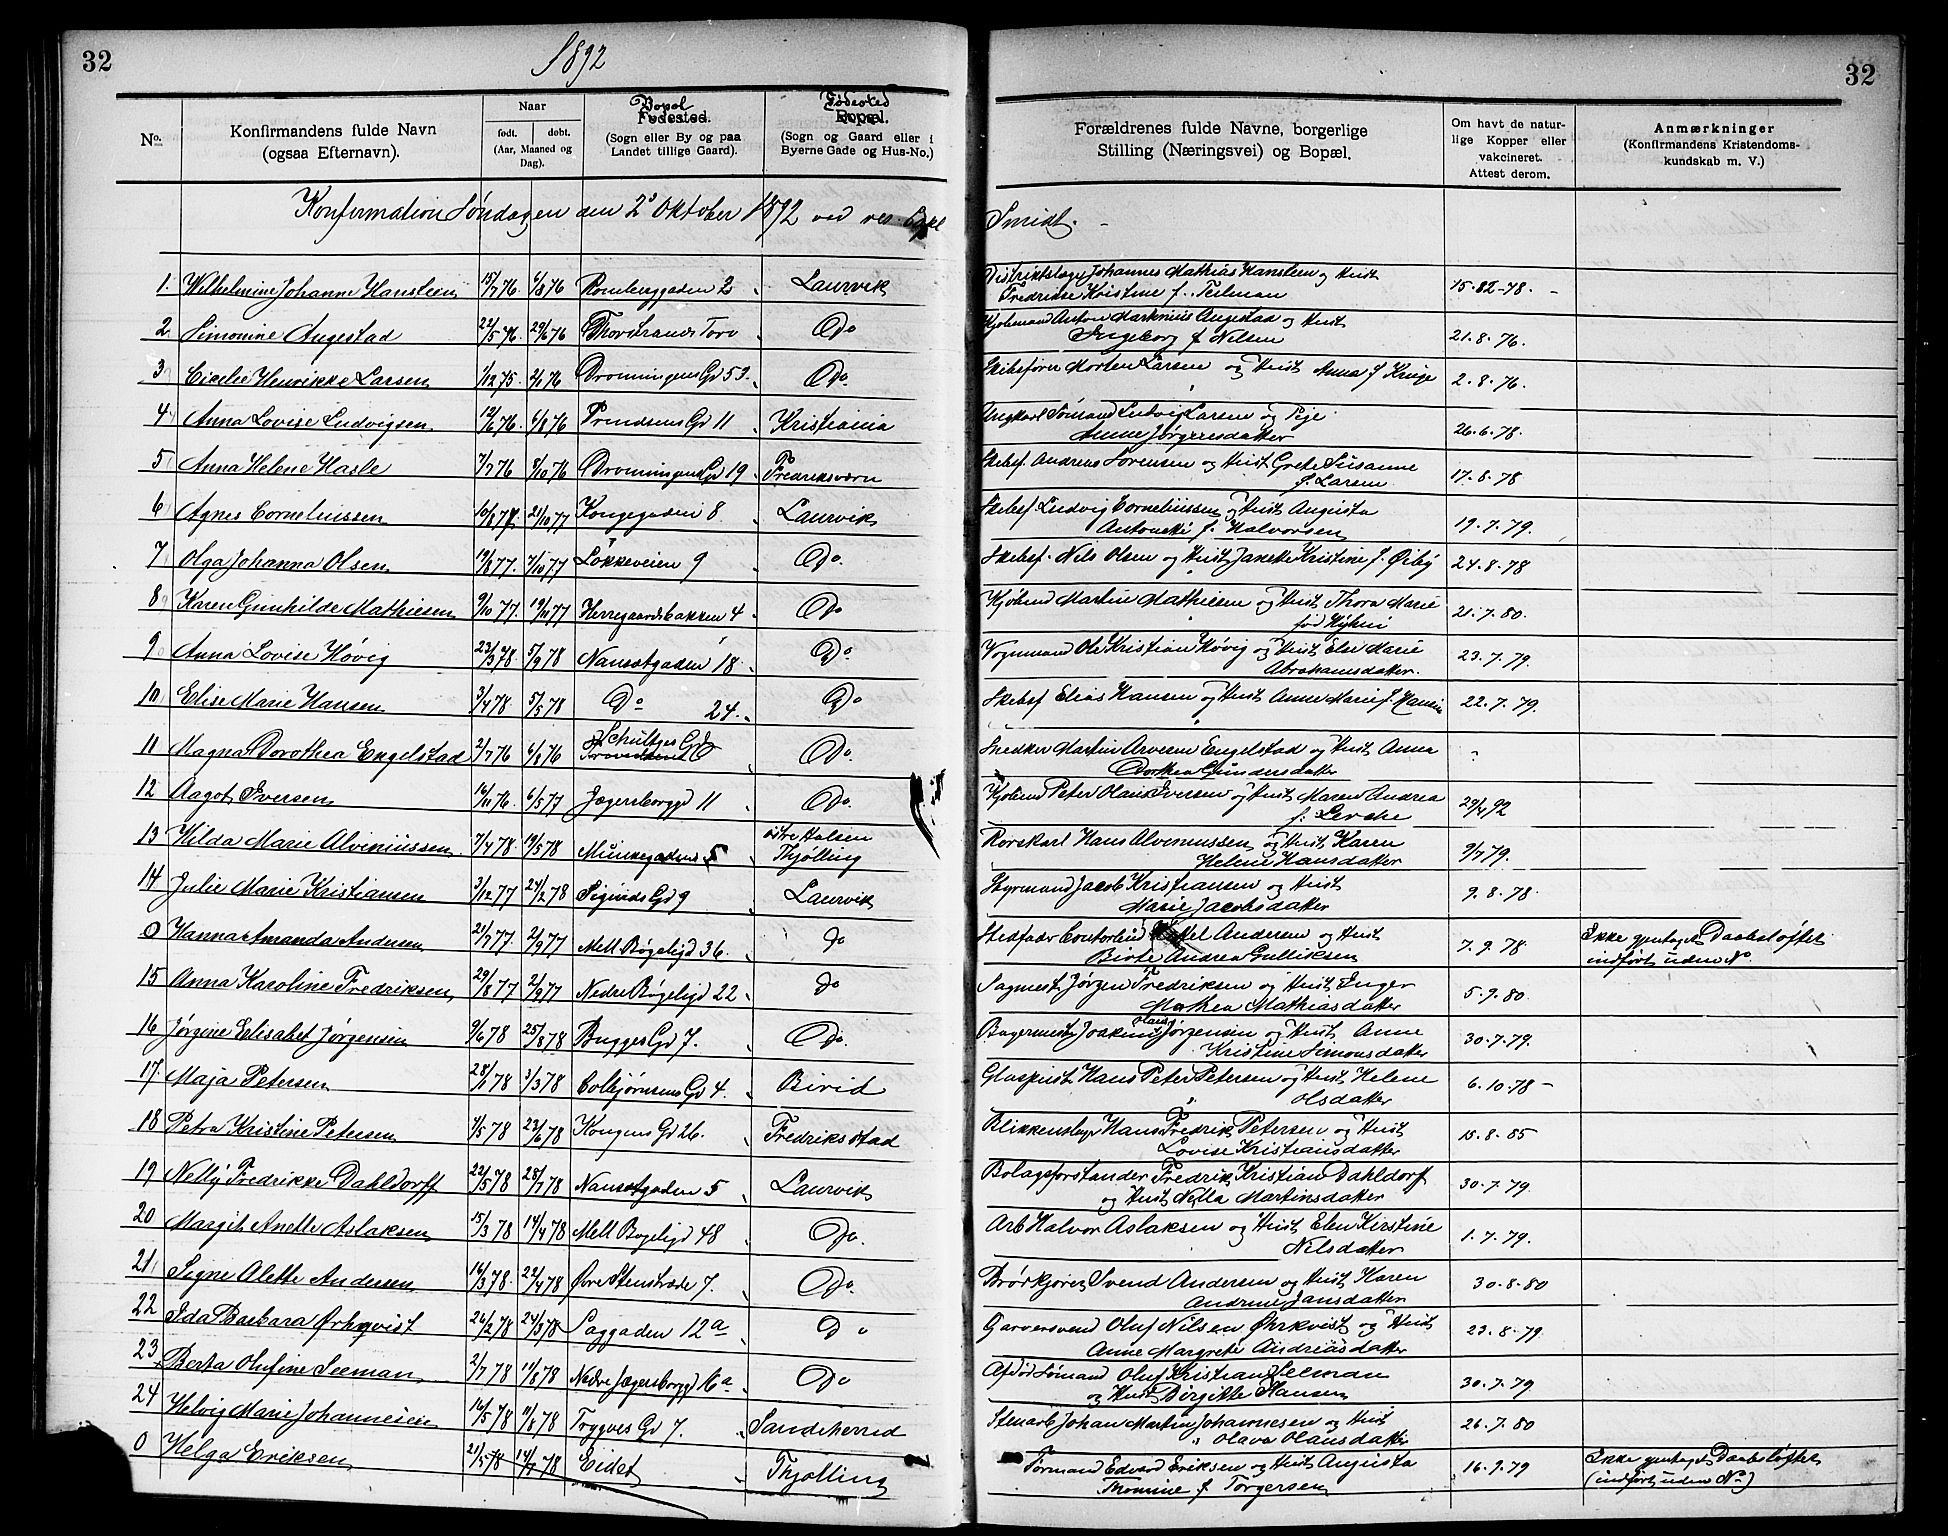 32
1892
32
No.
Konfirmandens fulde Navn
(ogsaa Efternavn).
Naar
født. døbt.
(Aar, Maaned og Dag).
Bopæl
Fødested.
(Sogn eller By og paa
Landet tillige Gaard).
Fødested
Bopæl.
(Sogn og Gaard eller i
Byerne Gade og Hus-No.)
Forældrenes fulde Navne, borgerlige
Stilling (Næringsvei) og Bopæl.
Om havt de natur-
lige Kopper eller
vakcineret.
Attest derom.
Anmærkninger
(Konfirmandens Kristendoms-
kundskab m. V.)
Konfirmation Søndagen den 2 Oktober 1892 ved res. Kpl Smidt.
1. Wilhelmine Johanne Hansteen 15/7 76 6/8 76 Rombergaden 2 Laurvik Distriktslæge Johannes Mathias Hansteen og Hust
Fredrikke Kristine f. 15.82-78.
2. Simonine Augestad 22/5 76. 29/6 76 Thorstrands Torv Do Kjøbmand Anton Markmus Augestad og Hust
Ingeborg f Nilsen 21.8.76.
3 Cicelie Henrikke Larsen 1/12 75 2/1 76 Dronningens Gd 53. Do. Skibsfører Morten Larsen og Hust Anna f Kruge 2.8.76.
4 Anna Lovise Ludvigsen 12/6 76. 6/8 76 Prindsens Gd 11 Kristiania Ungkarl Sømand Ludvig Larsen og Pige
Anne Jørgensdatter 26.6.78.
5 Anna Helene Hasle 7/7 76 8/10 76 Dronningens Gd 19 Fredriksværn Skibsf Andreas Sørensen og Hust Grete Susanne
f. Larsen 17.8.78
6 Agnes Corneliussen 16/8 77. 21/10 77 Kongegaden 8. Laurvik Skibsf. Ludvig Corneliussen og Hust Augusta
Antonette f. Halvorsen 19.7.79.
7 Olga Johanna Olsen 19/8 77. 7/10 77 Løkkeveien 9 Do. Skibsf. Nils Olsen og Hust Janekke Kristine f. Ørby 24.8.78
8 Karen Gunhilde Mathiesen 9/10 77. 19/11 77 Herregaardsbakken 4. Do Kjøbmd Martin Mathiesen og Hust Thora Marie
fød 21.7.80.
9 Anna Lovise Høvig 23/3 78. 5/9 78 Nansetgaden 18. Do. Vognmand Ole Kristian Høvig og Hust Elen Marie
Abrahamsdatter. 23.7.79.
10. Elise Marie Hansen 3/4 78. 5/5 78 Do 24. Do Skibsf Elias Hansen og Hust Anne Marie f. Hansen 22.7.79.
11 Magna Dorothea Engelstad 2/7 76 6/8 76 Schultzes Gd Do. Snedker Martin Arvesen Engelstad og Hust Anna
Dorthea Gundersdatter
12 Aagot Iversen 16/11 76. 6/5 77 Jegersborggd 11 Do. Kjøbmd Peter Olaus Iversen og Hust Maren Andrea
f. Lerche 29/4 92
13 Hilda Marie Alviniussen 7/4 78. 19/5 78 Munkegaden 5 østre Halsen
Thjølling Rorskarl Hans Alvinussen og Hust Karen
Helene Hansdatter 9/7 79.
14 Julie Marie Kristiansen 3/12 77 24/2 78 Sigurds Gd 9 Laurvik Styrmand Jacob Kristiansen og Hust
Marie Jacobsdatter 9.8.78.
0 Hanna Amanda Andersen 21/7 77. 2/9 77 Mell Bøgeligd 36. do Stedfader Contorbud Andersen og Hust
Birte Andrea Gulliksen 7.9.78 Ikke gjentaget Daabsløftet
indført uden No
15 Anna Karoline Fredriksen 29/8 77 2/9 77 Nedre Bøgeligd 22 do Sagmest. Jørgen Fredriksen og Hust Inger
Mathea Mathiasdatter 5.9.80.
16 Jørgine Elisabet Jørgensen 9/6 78 25/8 78 Bugges Gd 7. Do. Bagermester Joakim Hans Jørgensen og Hust Anne
Kristine Simonsdatter 30.7.79.
17. Maja Petersen 28/1 78 3/3 78 Colbjørnsens Gd 4. Birid Glaspust. Hans Peter Petersen og Hust Helene
Olsdatter 6.10.78
18 Petra Kristine Petersen 4/5 78 23/6 78 Kongens Gd 26. Fredriksstad Blikkenslager Hans Fredrik Petersen og Hust
Lovise Kristiansdatter 15.8.85
19 Nelly Fredrikke Dahldorff 22/5 78 28/7 78 Nansetgaden 5 Laurvik Bolagsforstander Fredrik Kristian Dahldorf
og Hust Nella Martinsdatter 30.7.79.
20 Margit Anette Aslaksen 15/3 78 14/4 78 Mell Bøgeligd 48 Do. Arb Halvor Aslaksen og Hust Elen Kirstine
Nilsdatter 1.7.79.
21 Signe Alette Andersen 16/3 78. 22/4 78 Øvre Stenstræde 7. Do. Brødkjører Svend Andersen og Hust Karen
Andrine Jansdatter 30.8.80
22 Ida Barbara Ørhqvist 26/2 78 24/3 78 Saggaden 12a Do Garversvend Oluf Nilsen Ørkvist og Hust
Anne Margrete Andreasdatter 23.8.79.
23 Berta Olufine Seeman 2/7 78 11/8 78 Nedre Jegersborggd 6a Do Afdød Sømand Oluf Kristian Seeman
og Hust Birgitte Hansen 30.7.79
24 Helvig Marie Johannesen 16/5 78 11/8 78 Trygves Gd 7. Sandeherred Stenarb Johan Martin Johannesen og Hust
Olava Olausdatter 26.7.80
0 Helga Eriksen 21/5 78 14/7 78 Eidet Thjølling Formand Edvard Eriksen og Hust Augusta
Thomine f Torgersen 16.9.79 Ikke gjentaget Daabsløftet
(indført uden No)